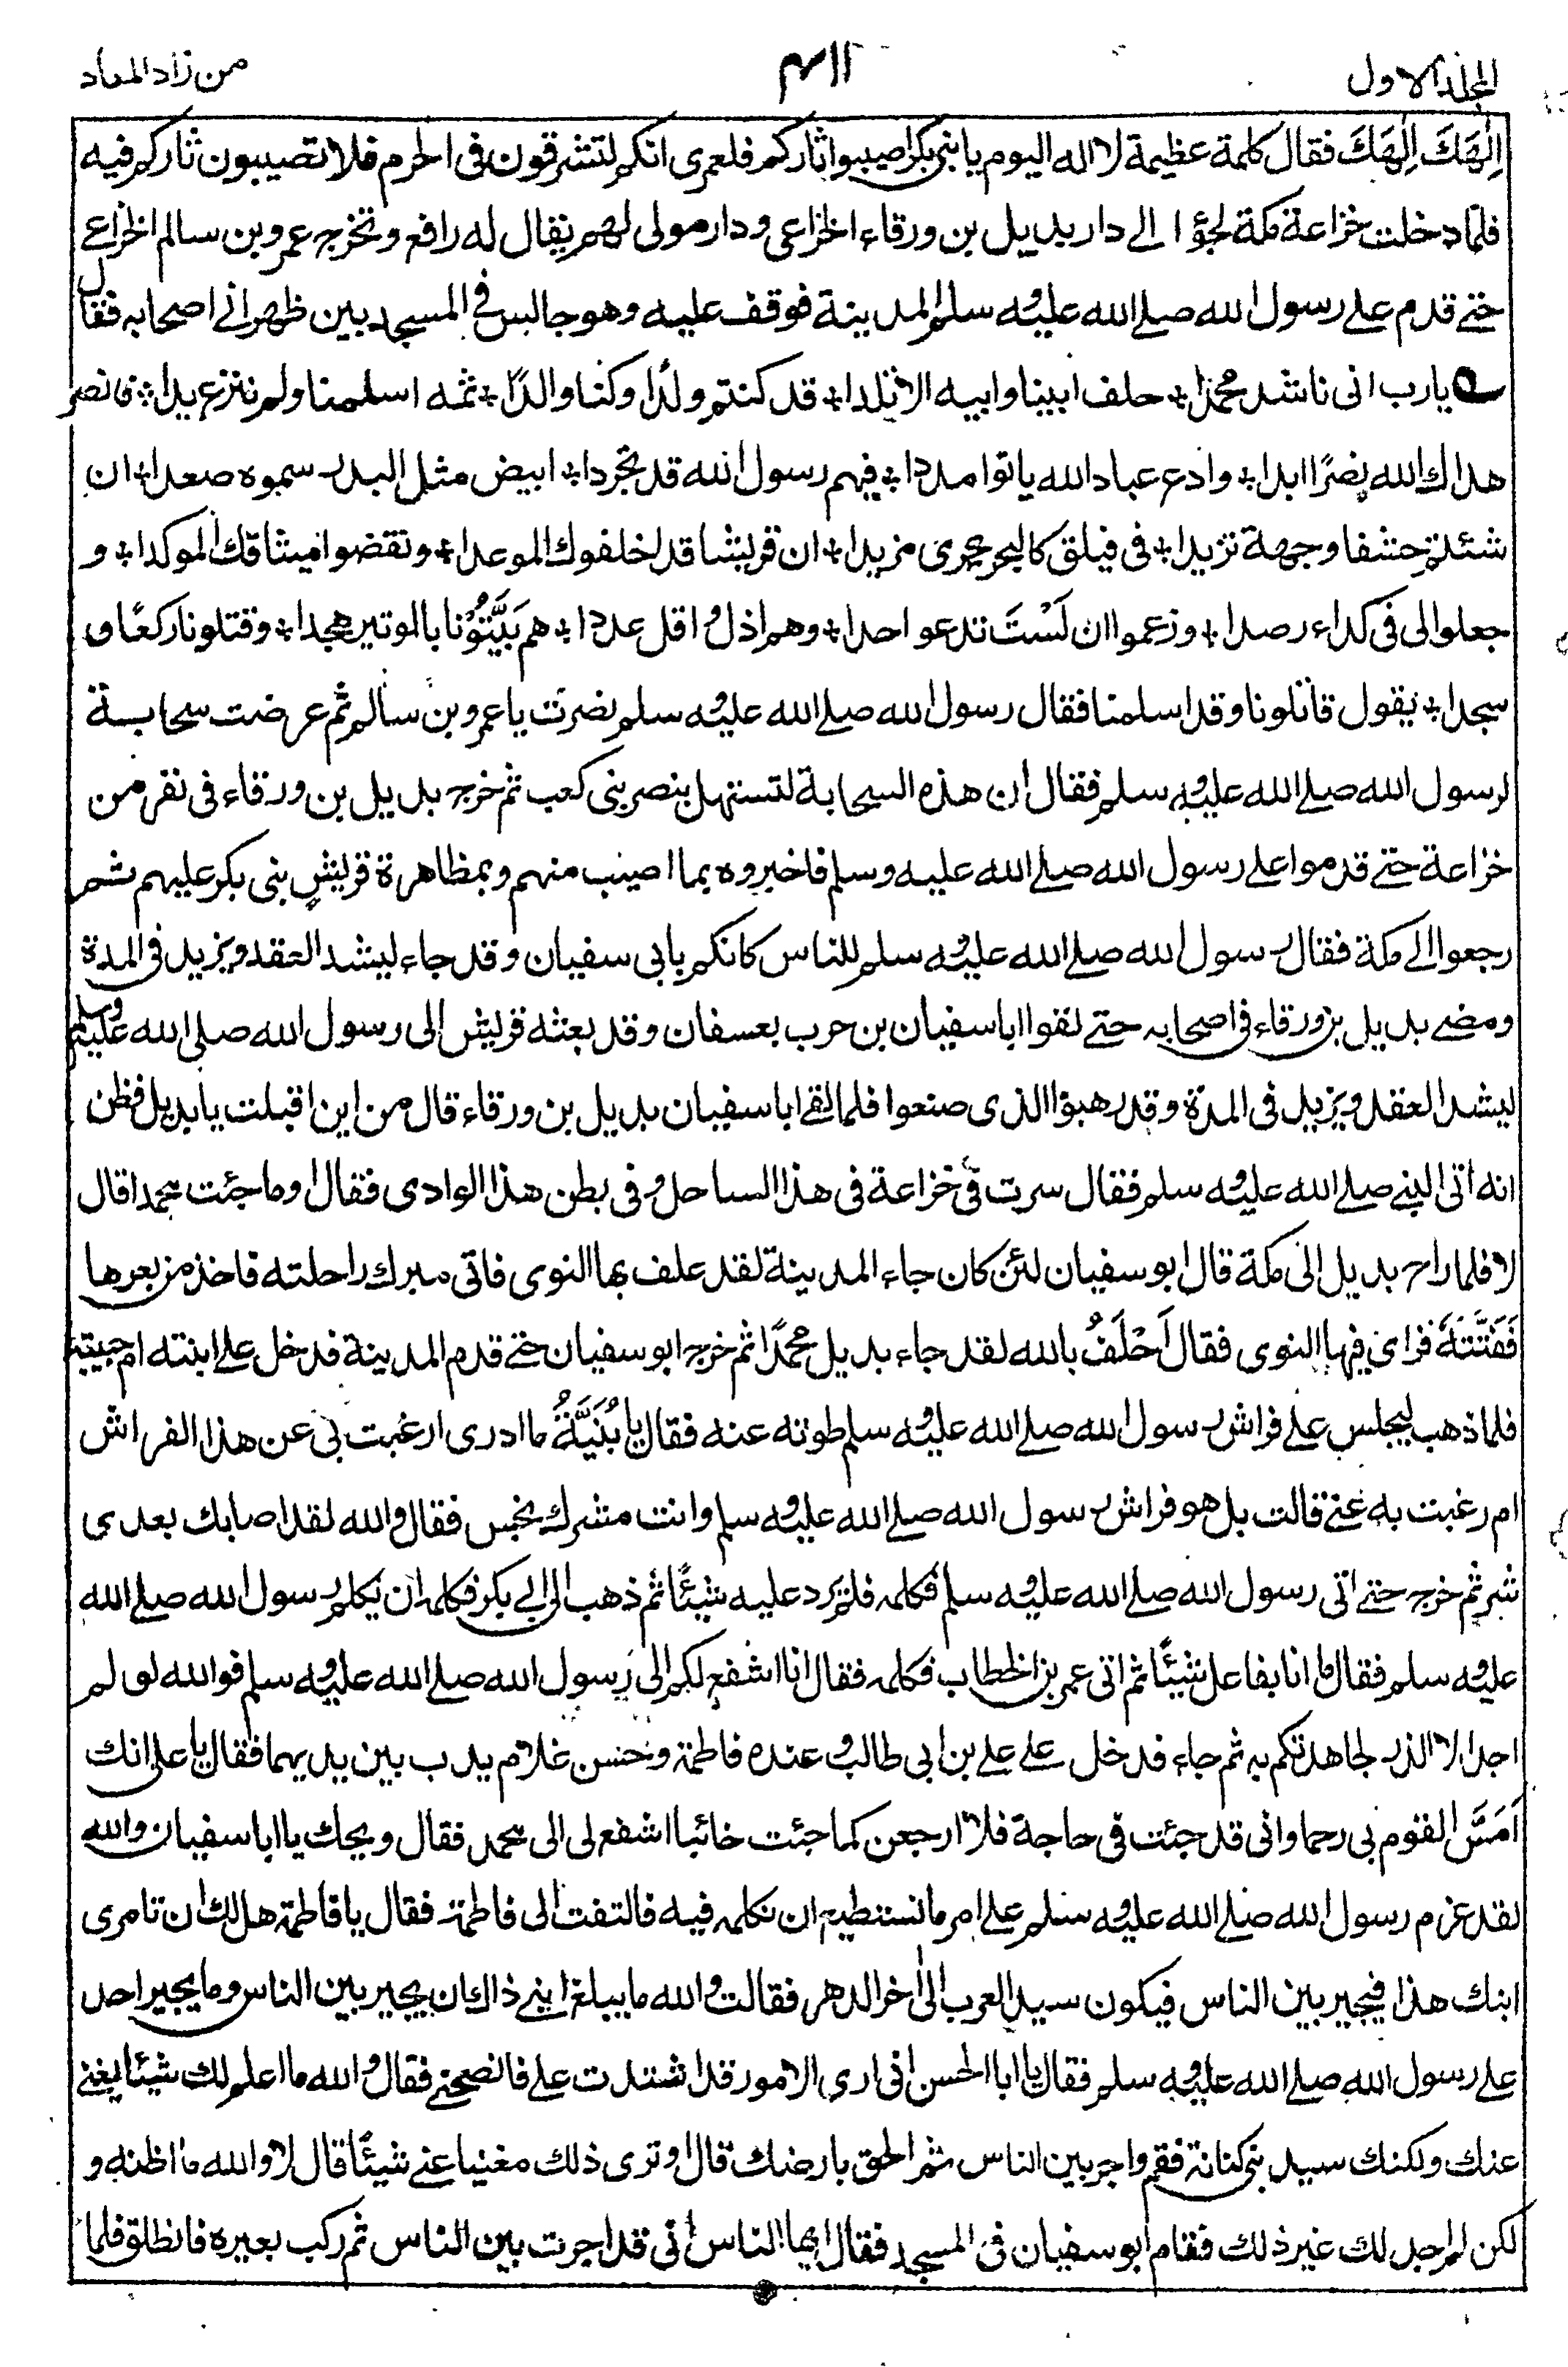 المجلد الاول
۴۱۱
من زاد المعاد
اِلٰهَكَ اِلٰهَكَ فقال كلمة عظيمة لا اله اليوم يا بنى بكر اصيبوا ثاركم فلعمرى انكم لتشرقون فى الحرم فلا تصيبون ثاركم فيه
فلما دخلت خزاعة مكة لجؤا الى دار بديل بن ورقاء الخزاعى ودار مولى لهم يقال له رافع وتخرج عمرو بن سالم الخزاعى
حتى قدم على رسول الله صلى الله عليه وسلم المدينة فوقف عليه وهو جالس فى المسجد بين ظهرانى اصحابه فقال
يا رب انى ناشد محمدا * حلف ابينا وابيه الاتلدا * قد كنتم ولدا وكنا والدا * ثمه اسلمنا ولم ننزع يدا * فانصر
هداك الله نصرًا ابدا * وادع عباد الله ياتوا مددا * فيهم رسول الله قد تجردا * ابيض مثل البدر سموه صعدا * ان
شئلة حشفا وجهة تزيدا * فى فيلق كالبحر يجرى مزبدا * ان قريشا قد اخلفوك الموعدا * ونقضوا ميثاقك الموكدا * و
جعلوا لى فى كداء رصدا * وزعموا ان لَسْتَ تدعو احدا * وهم اذل واقل عددا * هم بَيَّتُوْنا بالوتير هجدا * وقتلونا ركعًا و
سجدا * يقول قاتلونا وقد اسلمنا فقال رسول الله صلى الله عليه وسلم نصرت يا عمرو بن سالم ثم عرضت سحابة
لرسول الله صلى الله عليه وسلم فقال ان هذه السحابة لتستهل بنصر بنى كعب ثم خرج بديل بن ورقاء فى نفر من
خزاعة حتى قدموا على رسول الله صلى الله عليه وسلم فاخبروه بما اصيب منهم وبمظاهرة قريش بنى بكر عليهم ثم
رجعوا الى مكة فقال رسول الله صلى الله عليه وسلم للناس كانكم بابى سفيان وقد جاء ليشد العقد ويزيد فى المدة
ومضى بديل بن ورقاء فى اصحابه حتى لقوا ابا سفيان بن حرب بعسفان وقد بعثه قريش الى رسول الله صلى الله عليه وسلم
ليشد العقد ويزيد فى المدة وقد رهبوا الذى صنعوا فلما لقى ابا سفيان بديل بن ورقاء قال من اين اقبلت يا بديل فظن
انه اتى النبى صلى الله عليه وسلم فقال سرت فى خزاعة فى هذا الساحل وفى بطن هذا الوادى فقال او ما جئت محمدا قال
لا فلما راح بديل الى مكة قال ابو سفيان لئن كان جاء المدينة لقد علف بها النوى فاتى مبرك راحلته فاخذ من بعرها
فَفَتَّتَهٗ فراى فيها النوى فقال اَحْلَفُ بالله لقد جاء بديل محمدًا ثم خرج ابو سفيان حتى قدم المدينة فدخل على ابنته ام حبيبة
فلما ذهب ليجلس على فراش رسول الله صلى الله عليه وسلم طوته عنه فقال يا بُنَيَّةُ ما ادرى ارغبت بى عن هذا الفراش
ام رغبت به عنى قالت بل هو فراش رسول الله صلى الله عليه وسلم وانت مشرك نجس فقال والله لقد اصابك بعدى
شر ثم خرج حتى اتى رسول الله صلى الله عليه وسلم فكلمه فلم يرد عليه شيئًا ثم ذهب الى ابى بكر فكلمه ان يكلم رسول الله صلى الله
عليه وسلم فقال ما انا بفاعل شيئًا ثم اتى عمر بن الخطاب فكلمه فقال انا اشفع لكم الى رسول الله صلى الله عليه وسلم فوالله لو لم
اجد الا الذر لجاهدتكم به ثم جاء فدخل على على بن ابى طالب وعنده فاطمة وحسن غلام يدب بين يديهما فقال يا على انك
اَمَسَّ القوم بى رحما وانى قد جئت فى حاجة فلا ارجعن كما جئت خائبا اشفع لى الى محمد فقال ويحك يا ابا سفيان والله
لقد عزم رسول الله صلى الله عليه وسلم على امر ما نستطيع ان نكلمه فيه فالتفت الى فاطمة فقال يا فاطمة هل لك ان تامرى
ابنك هذا فيجير بين الناس فيكون سيد العرب الى اخر الدهر فقالت والله ما يبلغ ابنى ذاك ان يجير بين الناس وما يجير احد
على رسول الله صلى الله عليه وسلم فقال يا ابا الحسن انى ارى الامور قد اشتدت على فانصحنى فقال والله ما اعلم لك شيئا يغنى
عنك ولكنك سيد بنى كنانة فقم واجر بين الناس ثم الحق بارضك قال اوترى ذلك مغنيا عنى شيئًا قال لا والله ما اظنه و
لكن لم اجد لك غير ذلك فقام ابو سفيان فى المسجد فقال ايها الناس انى قد اجرت بين الناس ثم ركب بعيره فانطلق فلما